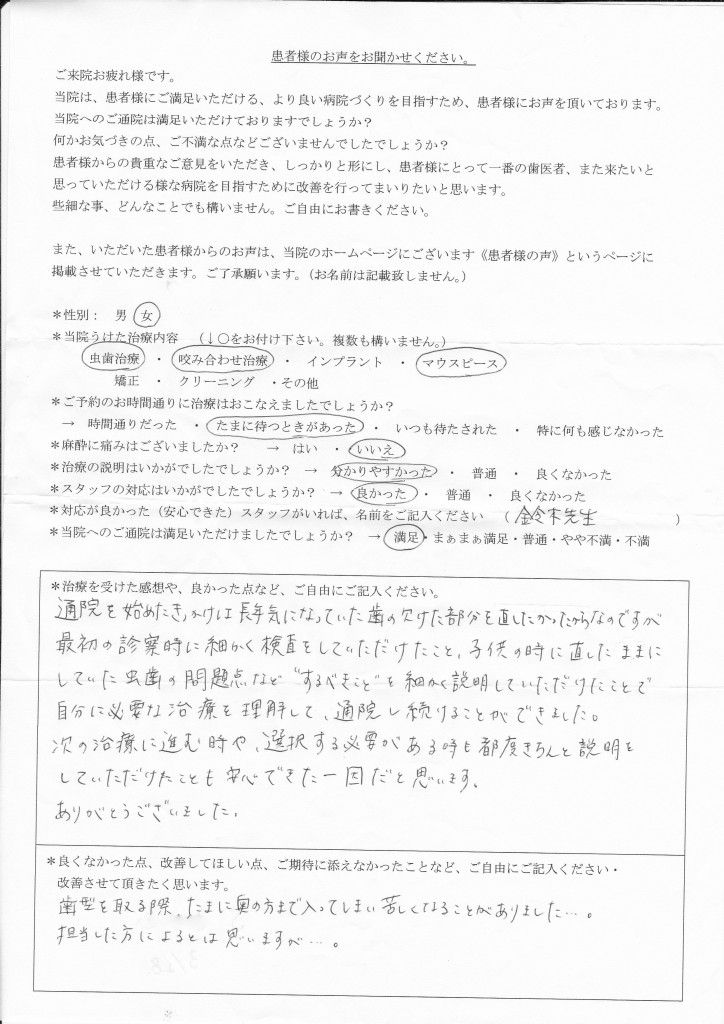 患者様のお声をお聞かせください。
ご来院お疲れ様です。
当院は、患者様にご満足いただける、より良い病院づくりを目指すため、患者様にお声を頂いております。
当院へのご通院は満足いただけておりますでしょうか？
何かお気づきの点、ご不満な点などございませんでしたでしょうか？
患者様からの貴重なご意見をいただき、しっかりと形にし、患者様にとって一番の歯医者、また来たいと
思っていただける様な病院を目指すために改善を行ってまいりたいと思います。
些細な事、どんなことでも構いません。ご自由にお書きください。
また、いただいた患者様からのお声は、当院のホームページにございます《患者様の声》というページに
掲載させていただきます。ご了承願います。（お名前は記載致しません。）
＊性別： 男 女
＊当院うけた治療内容 （↓〇をお付け下さい。複数も構いません。）
虫歯治療 ・ 咬み合わせ治療 ・ インプラント ・ マウスピース
矯正 ・ クリーニング ・その他
＊ご予約のお時間通りに治療はおこなえましたでしょうか？
→ 時間通りだった ・ たまに待つときがあった ・ いつも待たされた ・ 特に何も感じなかった
＊麻酔に痛みはございましたか？ → はい ・ いいえ
＊治療の説明はいかがでしたでしょうか？ → 分かりやすかった ・ 普通 ・ 良くなかった
＊スタッフの対応はいかがでしたでしょうか？ → 良かった ・ 普通 ・ 良くなかった
＊対応が良かった（安心できた）スタッフがいれば、名前をご記入ください （ 鈴木先生 ）
＊当院へのご通院は満足いただけましたでしょうか？ → 満足・まぁまぁ満足・普通・やや不満・不満
＊治療を受けた感想や、良かった点など、ご自由にご記入ください。
通院を始めたきっかけは長年気になっていた歯の欠けた部分を直したかったからなのですが
最初の診察時に細かく検査をしていただけたこと、子供の時に直したままに
していた虫歯の問題点など"するべきこと"を細かく説明していただけたことで
自分に必要な治療を理解して、通院し続けることができました。
次の治療に進む時や、選択する必要がある時も都度きちんと説明を
していただけたことも安心できた一因だと思います。
ありがとうございました。
＊良くなかった点、改善してほしい点、ご期待に添えなかったことなど、ご自由にご記入ください・
改善させて頂きたく思います。
歯型を取る際、たまに奥の方まで入ってしまい苦しくなることがありました…。
担当した方によるとは思いますが…。